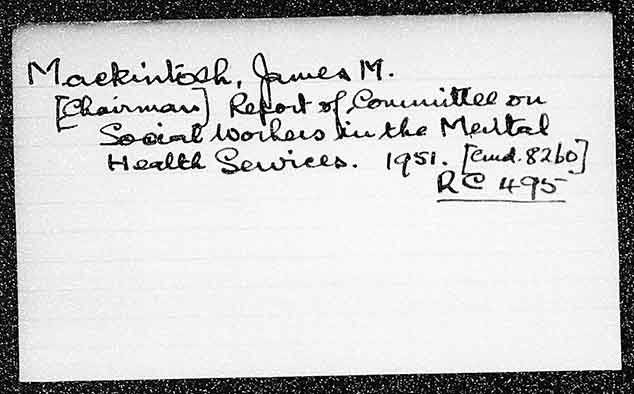 Mackintosh, James M.
[Chairman] Report of Committee on
Social Workers in the Mental
Health Services. 1951. [Cmd. 8260]
RC 495